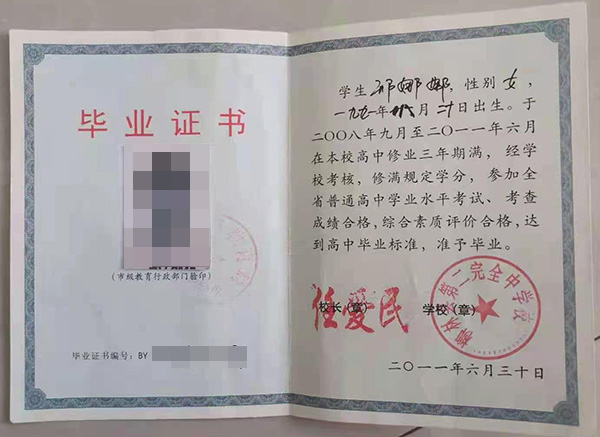 毕业证书
(市级教育行政部门验印)
毕业证书编号：BY
学生 祁娜娜，性别 女，
一九九一年 八月 二十日出生。于
二〇〇八年九月至二〇一一年六月
在本校高中修业三年期满，经学
校考核，修满规定学分，参加全
省普通高中学业水平考试、考查
成绩合格，综合素质评价合格，达
到高中毕业标准，准予毕业。
校长(章)
任爱民
学校(章)
柳林县第二完全中学校
二〇一一年六月三十日